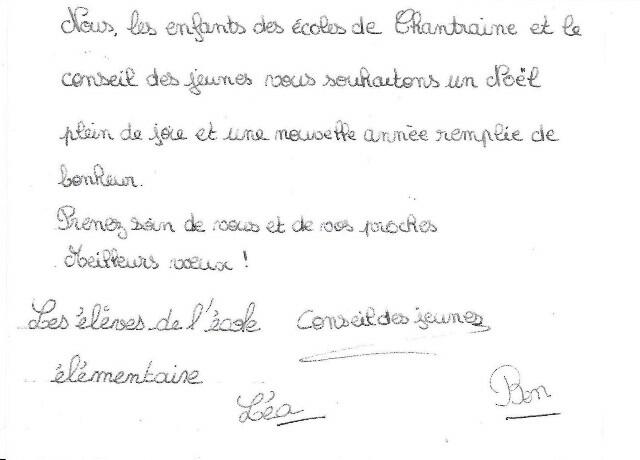 Nous, les enfants des écoles de Chantraine et le
conseil des jeunes vous souhaitons un Noël
plein de joie et une nouvelle année remplie de
bonheur.
Prenez soin de vous et de vos proches
Meilleurs vœux !
Les élèves de l'école Conseil des jeunes
élémentaire
Léa Ben